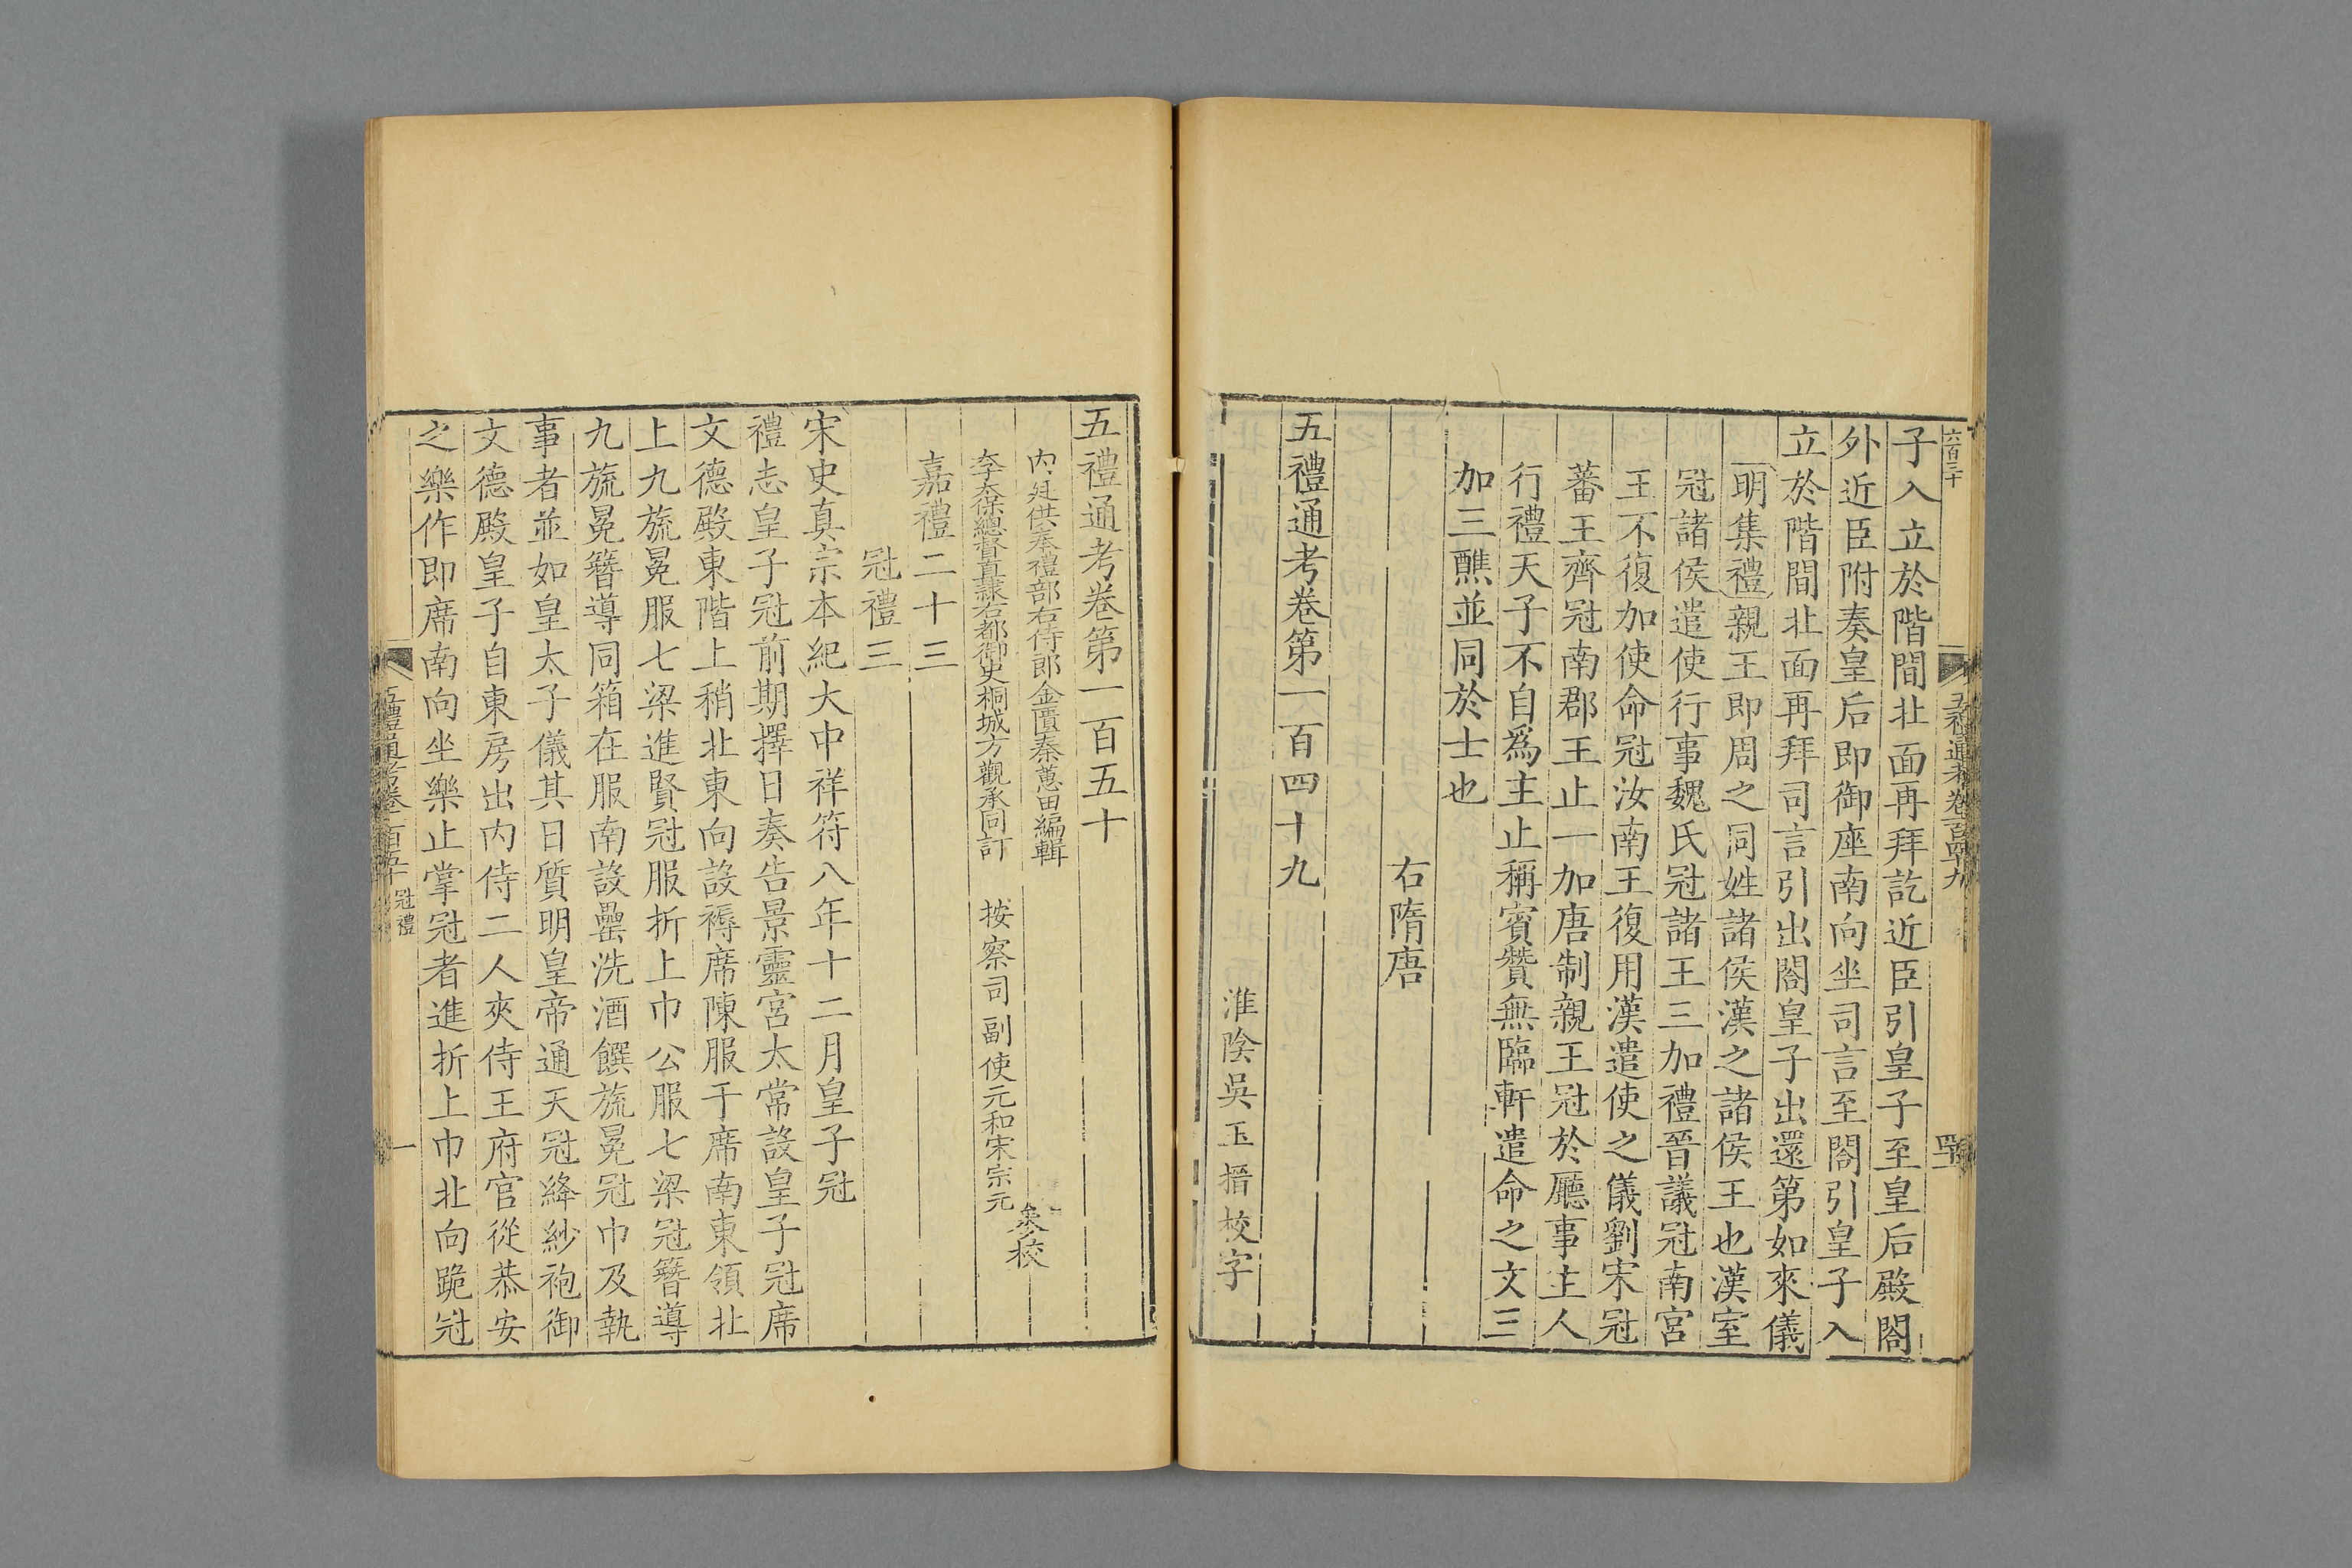 六百三十
五禮通考卷一百四十九
子入立於階間北面再拜訖近臣引皇子至皇后殿閤
外近臣附奏皇后即御座南向坐司言至閤引皇子入
立於階間北面再拜司言引出閤皇子出還第如來儀
明集禮親王即周之同姓諸侯漢之諸侯王也漢室
冠諸侯遣使行事魏氏冠諸王三加禮晉議冠南宮
王不復加使命冠汝南王復用漢遣使之儀劉宋冠
蕃王齊冠南郡王止一加唐制親王冠於廳事主人
行禮天子不自為主止稱賓贊無臨軒遣命之文三
加三醮並同於士也
右隋唐
五禮通考卷第一百四十九
淮陰吳玉搢校字
五禮通考卷第一百五十
內廷供奉禮部右侍郎金匱秦蕙田編輯
太保總督直隸右都御史桐城方觀承同訂
按察司副使元和宋宗元
參校
嘉禮二十三
冠禮三
宋史真宗本紀大中祥符八年十二月皇子冠
禮志皇子冠前期擇日奏告景靈宮太常設皇子冠席
文德殿東階上稍北東向設褥席陳服于席南東領北
上九旒冕服七梁進賢冠服折上巾公服七梁冠簪導
九旒冕簪導同箱在服南設罍洗酒饌旒冕冠巾及執
事者並如皇太子儀其日質明皇帝通天冠絳紗袍御
文德殿皇子自東房出內侍二人夾侍王府官從恭安
之樂作即席南向坐樂止掌冠者進折上巾北向跪冠
五禮通考卷一百五十
冠禮
一